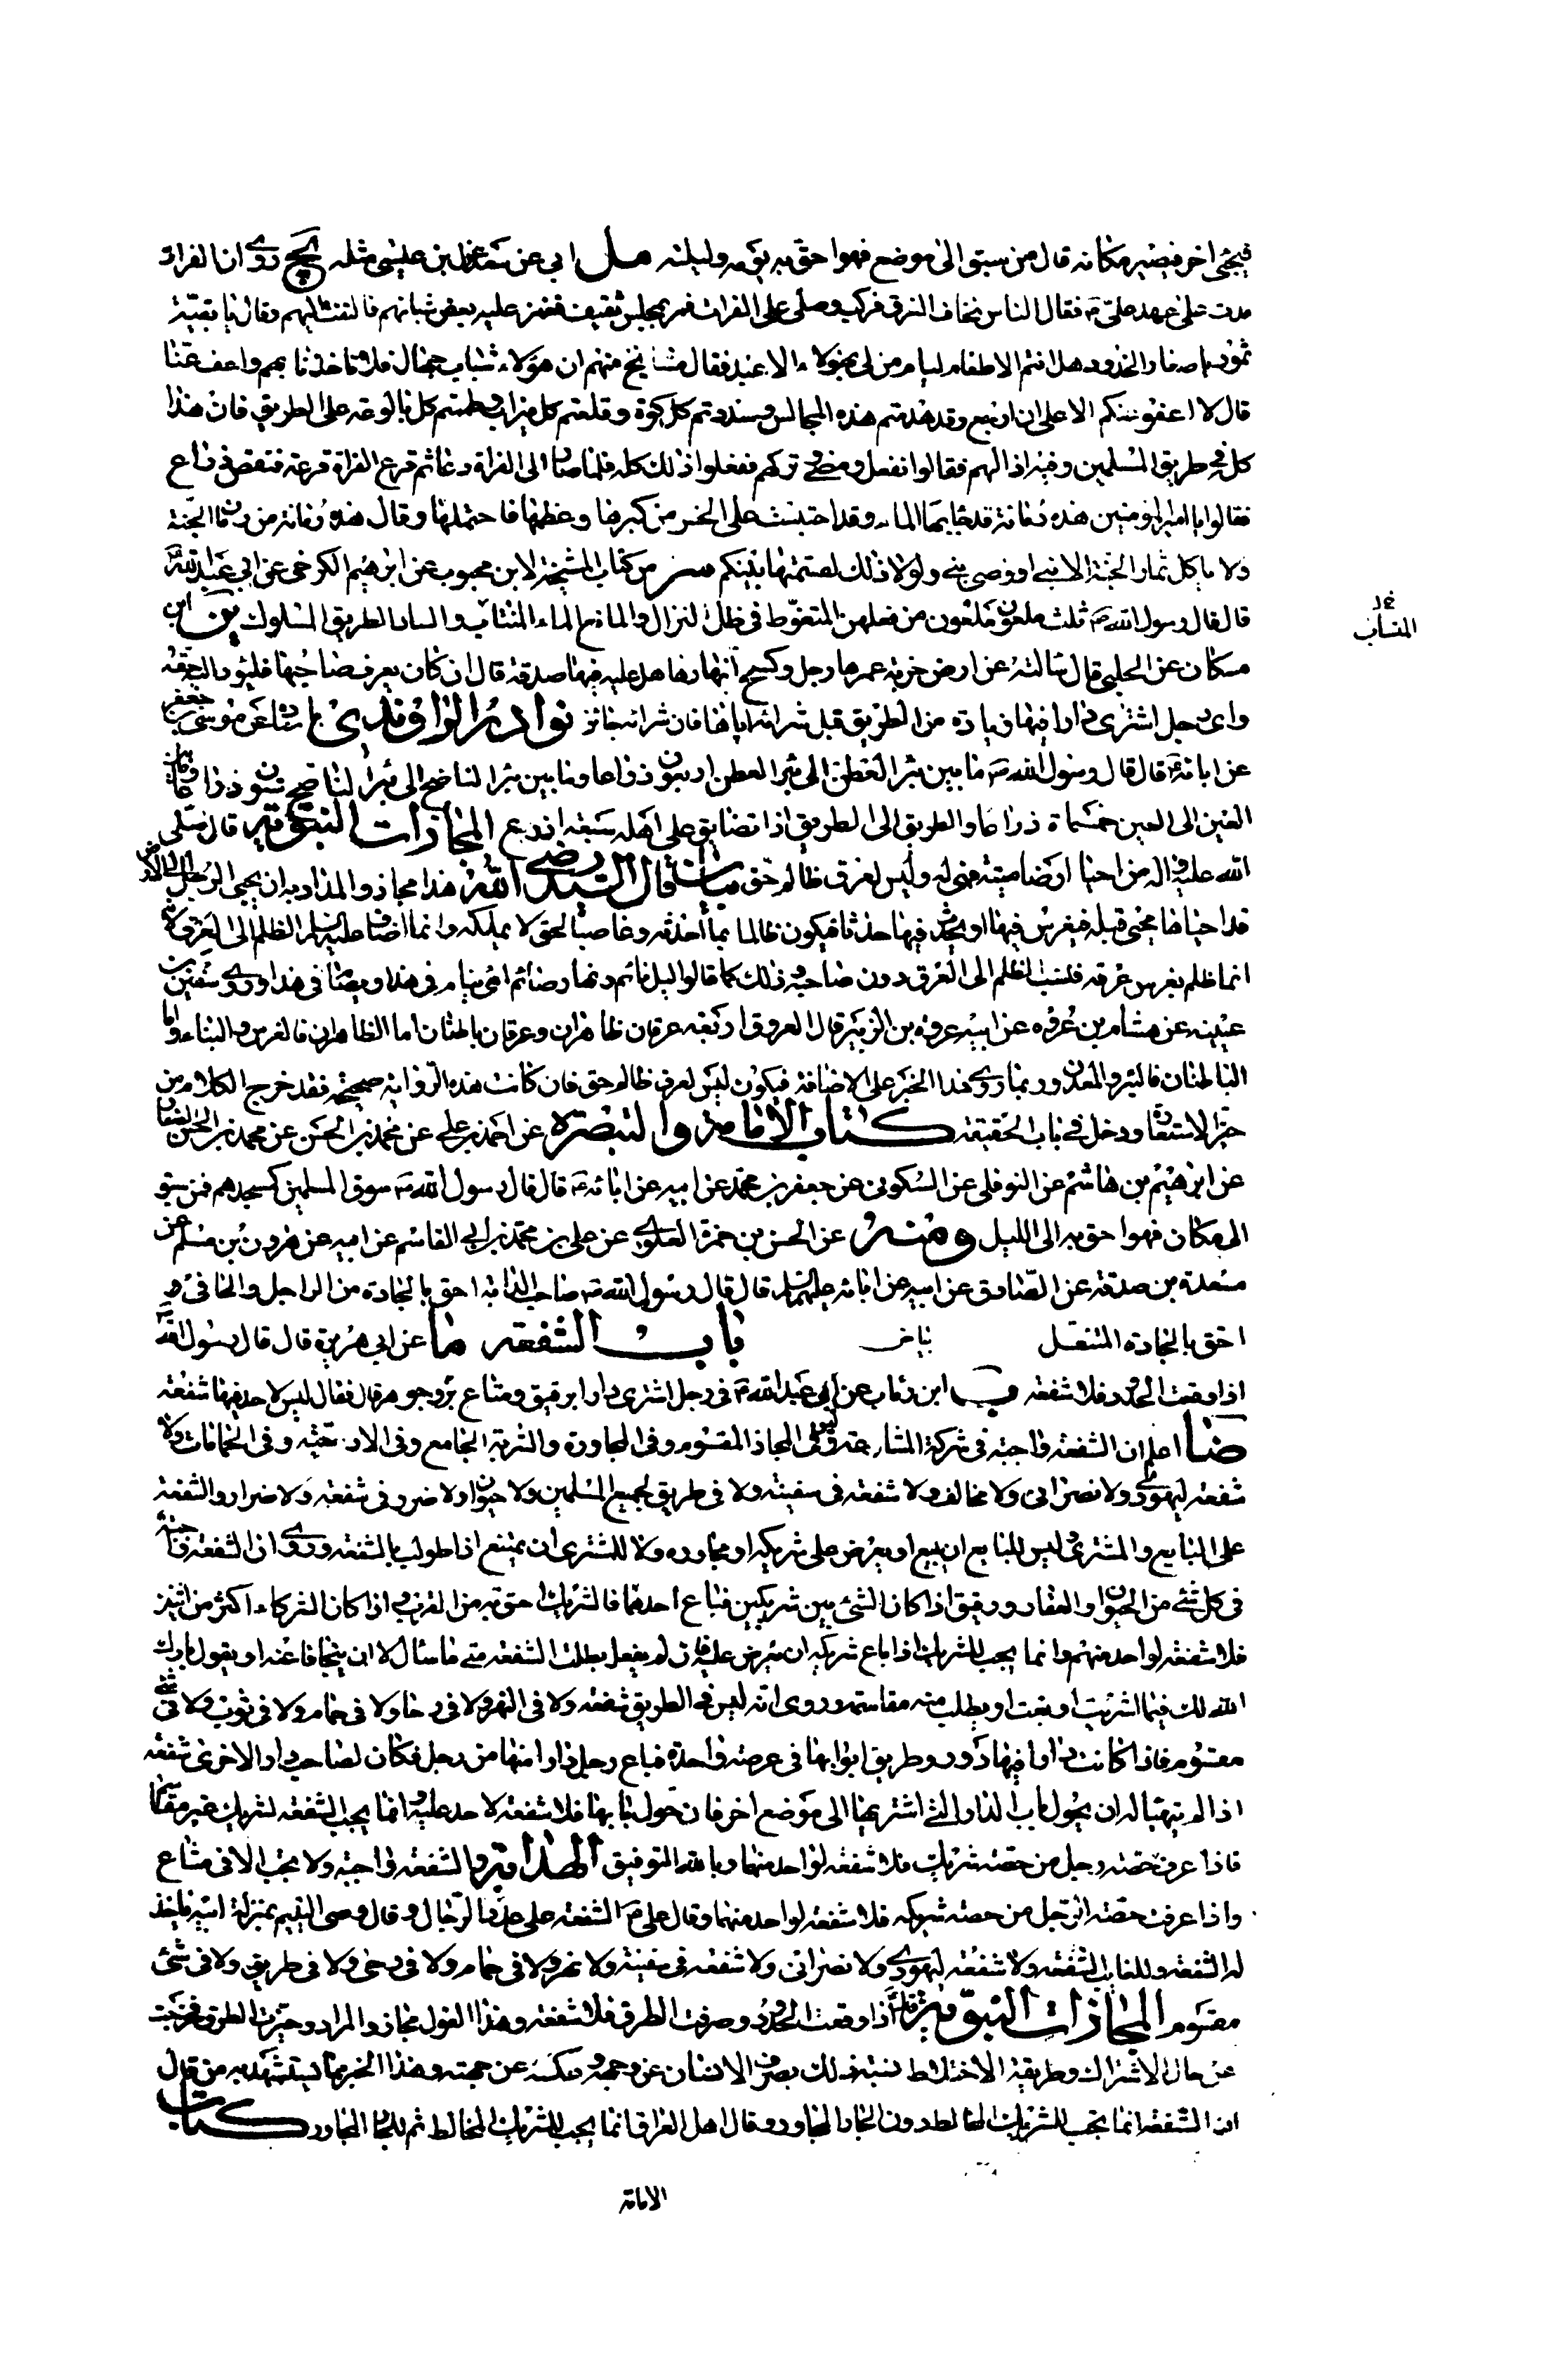 فيجئ اخر فيصير مكانه قال من سبق الى موضع فهو احق به يومه وليلته مل ابي عن سعد عن ابن عيسى مثله يج روى ان الفرات
مدت على عهد علي ع فقال الناس نخاف الغرق فركب وصلى على الفرات فمر بمجلس ثقيف فغمز عليه بعض شبانهم فالتفت اليهم وقال يا بقية
ثمود يا صغار الخدود هل انتم الا طغام لئام من لي بهؤلاء الاعبد فقال مشايخ منهم ان هؤلاء شباب جهال فلا تاخذنا بهم واعف عنا
قال لا اعفو عنكم الا على ان ارجع وقد هدمتم هذه المجالس وسددتم كل كوة وقلعتم كل ميزاب وطمستم كل بالوعة على الطريق فان هذا
كله في طريق المسلمين وفيه اذا لهم فقالوا نفعل ومضى وتركهم ففعلوا ذلك كله فلما صار الى الفراة دعا ثم قرع الفراة قرعة فنقص ذراع
فقالوا يا امير المؤمنين هذه رمانة قد جاء بها الماء وقد احتبست على الجسر من كبرها وعظمها فاحتملها وقال هذه رمانة من رمان الجنة
ولا ياكل ثمار الجنة الا نبي او وصي نبي ولولا ذلك لقسمتها بينكم سر من كتاب المشيخة لابن محبوب عن ابرهيم الكرخي عن ابي عبد الله ع
قال قال رسول الله ص ثلث ملعون ملعون من فعلهن المتغوط في ظل النزال والمانع الماء المنتاب والساد الطريق المسلوك ين ابن
مسكان عن الحلبي قال سالته عن ارض خربة عمرها رجل وكسح انهارها هل عليه فيها صدقة قال ان كان يعرف صاحبها فليؤد اليه حقه
واى رجل اشترى دارا فيها زيادة من الطريق قبل شرائه اياها فان شرائه جائز نوادر الراوندي باسناده عن موسى بن جعفر
عن ابائه ع قال قال رسول الله ص ما بين بئر العطن الى بئر العطن اربعون ذراعا وما بين بئر الناضح الى بئر الناضح ستون ذراعا وما بين
العين الى العين خمسمائة ذراعا والطريق الى الطريق اذا تضايق على اهله سبعة اذرع المجازات النبوية قال صلى
الله عليه واله من احيا ارضا ميتة فهي له وليس لعرق ظالم حق بيان قال السيد رضي الله هذا مجاز والمراد به ان يجئ الرجل الى الارض
قد احياها محيي قبله فيغرس فيها او يحدث فيها حدثا فيكون ظالما بما احدثه وغاصبا لحق لا يملكه وانما اضاف عليه السلم الظلم الى العرق لانه
انما ظلم بغرس عرقه فنسب الظلم الى العرق دون صاحبه وذلك كما قالوا ليل نائم ونهار صائم اي ينام في هذا ويصام في هذا وروى سفين بن
عيينه عن هشام بن عروه عن ابيه عروه بن الزبير قال العروق اربعه عرقان ظاهران وعرقان باطنان اما الظاهران فالغرس والبناء واما
الباطنان فالبئر والمعدن وربما روى هذا الخبر على الاضافة فيكون ليس لعرق ظالم حق فان كانت هذه الرواية صحيحة فقد خرج الكلام من
حيز الاستعارة ودخل في باب الحقيقة كتاب الامامة والتبصرة عن احمد بن علي عن محمد بن الحسن عن محمد بن الحسن الصفار
عن ابرهيم بن هاشم عن النوفلي عن السكوني عن جعفر بن محمد عن ابيه عن ابائه ع قال قال رسول الله ص سوق المسلمين كمسجدهم فمن سبق
الى مكان فهو احق به الى الليل ومنه عن الحسن بن حمزة العلوي عن علي بن محمد بن ابي القاسم عن ابيه عن هرون بن مسلم عن
مسعدة بن صدقة عن الصادق عن ابيه عن ابائه عليهم السلم قال قال رسول الله ص صاحب الدابة احق بالجادة من الراجل والحافي
احق بالجادة المتنعل باب الشفعه ما عن ابي هريرة قال قال رسول الله ص
اذا وقعت الحدود فلا شفعه ب ابن رئاب عن ابي عبد الله ع في رجل اشترى دارا برقيق ومتاع بز وجوهر قال فقال ليس لاحد فيها شفعة
ضا اعلم ان الشفعة واجبة في شركة المشاعة وليس في المجاز المقسوم وفي المجاورة والشربة الجامع وفي الارحية وفي الحمامات ولا
شفعة ليهودي ولا نصراني ولا مخالف ولا شفعة في سفينة ولا في طريق لجميع المسلمين ولا حيوان ولا ضرر في شفعة ولا ضرار والشفعة
على البايع والمشتري ليس للبايع ان يبيع او يعرض على شريكه او مجاوره ولا للمشتري ان يمتنع اذا طولب بالشفعة وروى ان الشفعة واجبة
في كل شئ من الحيوان والعقار ورقيق اذا كان الشئ بين شريكين فباع احدهما فالشريك احق به من الغريب واذا كان الشركاء اكثر من اثنين
فلا شفعة لواحد منهم وانما يجب للشريك اذا باع شريكه ان يعرض عليه فان لم يفعل بطلت الشفعة متى ما سال الا ان يتجافا عنه او يقول بارك
الله لك فيما اشتريت او بعت او يطلب منه مقاسمة وروى انه ليس في الطريق شفعه ولا في النهر ولا في رحا ولا في حمام ولا في ثوب ولا في شئ
مقسوم فاذا كانت دارا فيها دور وطريق ابوابها في عرصة واحدة فباع رجل دارا منها من رجل فكان لصاحب دار الاخرى شفعه
اذا لم يتهيا له ان يحول باب الدار التي اشتريها الى موضع اخر فان حول بابها فلا شفعة لاحد عليه وانما يجب الشفعه لشريك غير مقاسم
فاذا عرف حصة رجل من حصة شريك فلا شفعة لواحد منهما وبالله التوفيق الهداية والشفعة واجبة ولا يجب الا في مشاع
واذا عرفت حصة الرجل من حصة شريكه فلا شفعة لواحد منهما وقال علي ع الشفعة على عدد الرجال وقال وصى اليتيم بمنزلة ابيه ياخذ
له الشفعة وللغايب الشفعة ولا شفعة ليهودي ولا نصراني ولا شفعة في سفينة ولا نهر ولا في حمام ولا في رحى ولا في طريق ولا في شئ
مقسوم المجازات النبوية قال اذا وقعت الحدود وصرفت الطرق فلا شفعة وهذا القول مجاز والمراد وحيزت الطرق فخرجت
عن حال الاشتراك وطريقة الاختلاط فشبه ذلك بصرف الانسان عن وجهه وعكسه عن جهته وهذا الخبر مما يستشهد به من قال
ان الشفعة انما تجب للشريك المخالط دون الجار المجاور وقال اهل العراق انما يجب للشريك المخالط ثم للجار المجاور كتاب
الامامة
المنساب